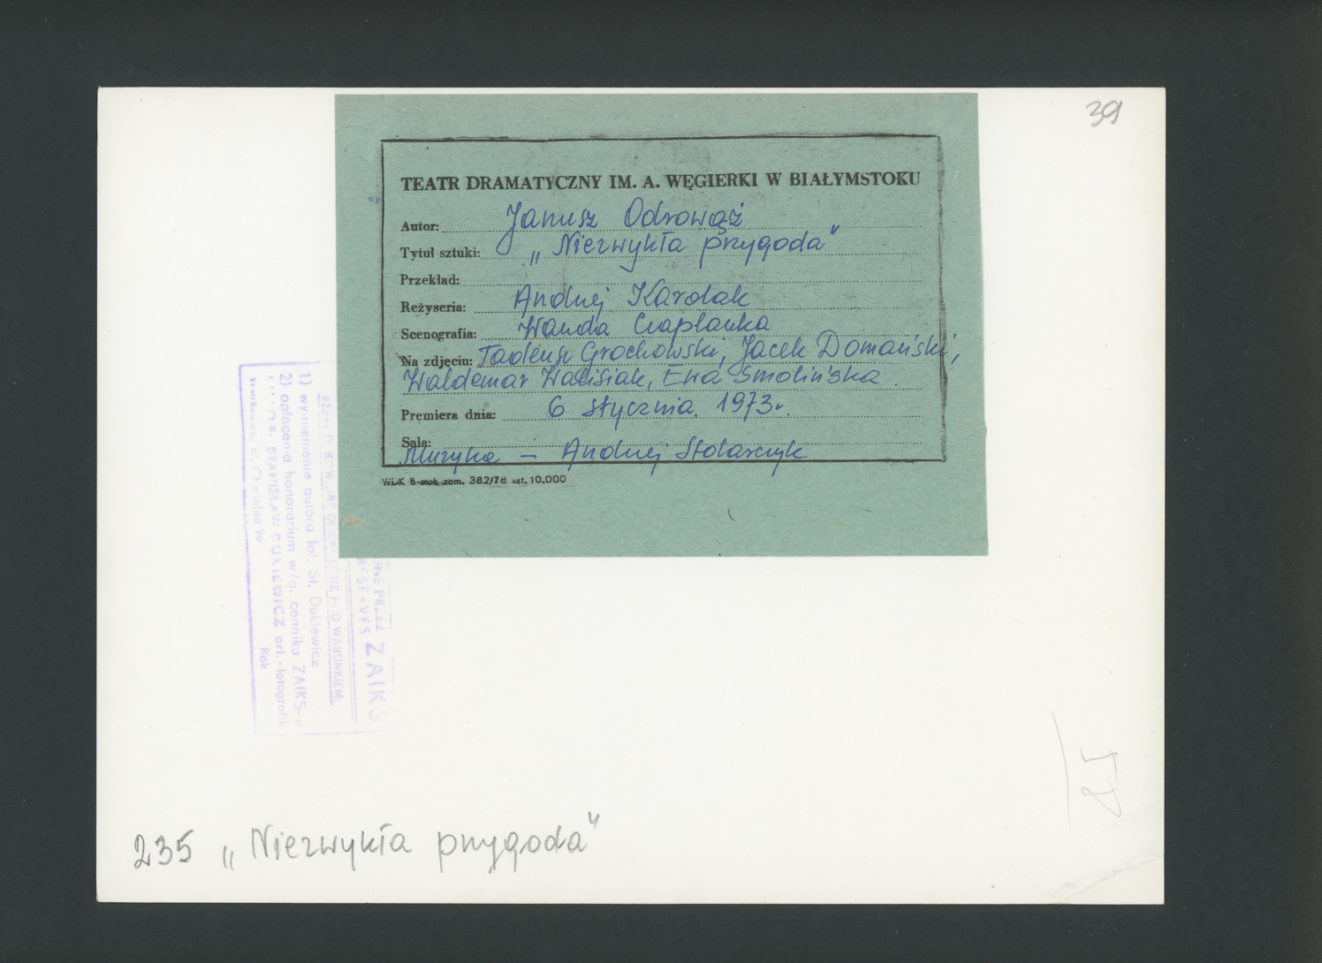 39
TEATR DRAMATYCZNY IM. A. WĘGIERKI W BIAŁYMSTOKU
Autor: Janusz Odrowąż
Tytuł sztuki: „Niezwykła przygoda"
Przekład:
Reżyseria: Andrzej Karolak
Scenografia: Wanda Czaplanka
Na zdjęciu: Tadeusz Grochowski, Jacek Domański,
Waldemar Walisiak, Ewa Smolińska
Premiera dnia: 6 stycznia 1973r.
Sala:
Muzyka – Andrzej Stolarczyk
WDK B-stok zam. 382/78 szt. 10.000
ZAIKS
WARUNKIEM
1) wymienienie autora fot. St. Dukiewicz
2) opłacenia honorarium w/g. cennika ZAIKS-u
STANISŁAW DUKIEWICZ art.-fotografik
Chmielna
Rok
235 „Niezwykła przygoda"